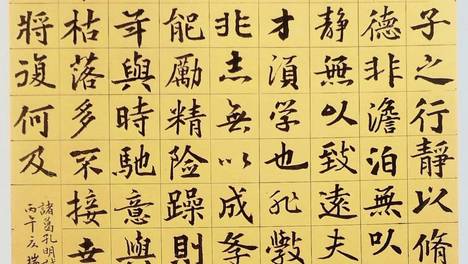 子之行靜以脩
德非澹泊無以
靜無以致遠夫
才須學也非學
非志無以成學
能勵精險躁則
年與時馳意與
枯落多不接世
將復何及
諸葛孔明
丙午